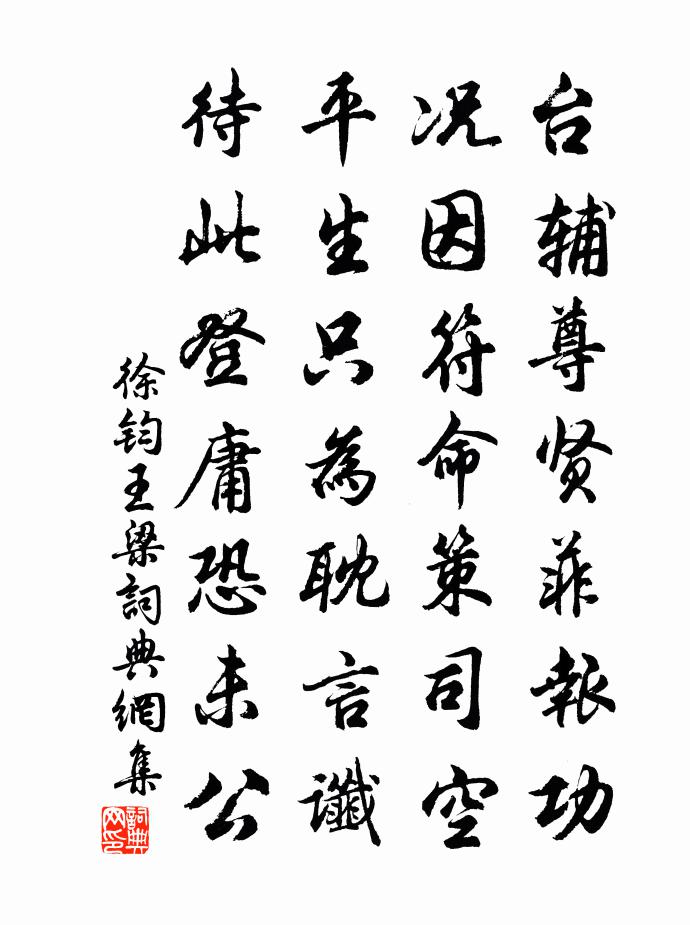 台辅尊贤菲報功
况因符命策司空
平生只為耽言讖
待此登庸恐未公
徐钧王梁詞典網集
詞典网印